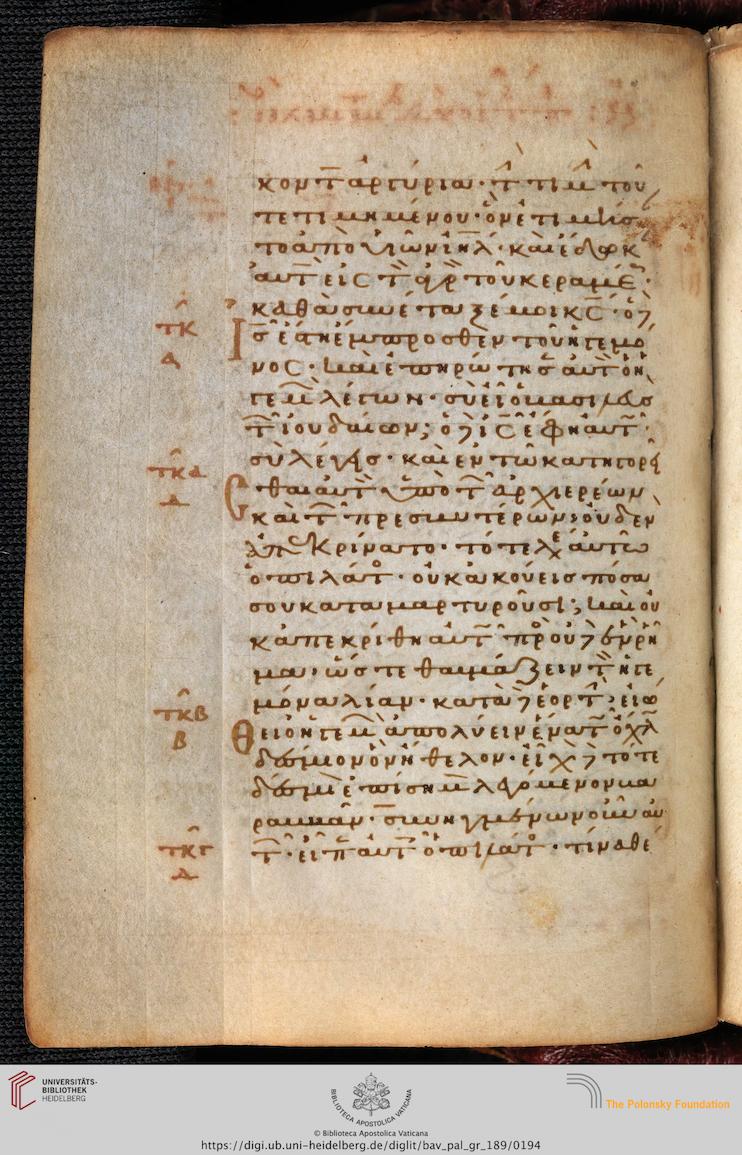 κοντ̅ ἀργύρια· τ̅ τιμ̅ τοῦ
τετιμημένου· ὃν ἐτιμήσ
το ἀπὸ υἱῶν ι̅η̅λ̅· καὶ ἔδωκ
αὐτ̅ εἰς τ̅ ἀγρ̅ τοῦ κεραμέ·
καθὰ συνέταξέ μοι κ̅ς̅· ὁ δ
τκ
Δ
ι̅ς̅ ἔστη ἔμπροσθεν τοῦ ἡγεμό
νος· καὶ ἐπηρώτησ αὐτ̅ ὁ ἡ
γεμ̅ λέγων· σὺ εἶ ὁ βασιλεὺς
τ̅ ἰουδαίων; ὁ δ ι̅ς̅ ἔφη αὐτ̅·
σὺ λέγεις· καὶ ἐν τῶ κατηγορεῖ
τκα
Δ
σθαι αὐτ̅ ὑπὸ τ̅ ἀρχιερέων
καὶ τ̅ πρεσβυτέρων, οὐδὲν
ἀπεκρίνατο· τότε λέγ αὐτῶ
ὁ πιλάτ̅· οὐκ ἀκούεις πόσα
σου καταμαρτυροῦσι; καὶ οὐ
κ ἀπεκρίθη αὐτ̅ πρὸ οὐδ ἓν ῥῆ
μα· ὥστε θαυμάζειν τ̅ ἡγε
μόνα λίαν· κατὰ δ ἑορτ̅, εἰώ
τκβ
β
θει ὁ ἡγεμ̅ ἀπολύειν ἕνα τ̅ ὄχλ̅
δέσμιον ὃν ἤθελον· εἶχ δ τότε
δέσμι ἐπίσημ̅ λεγόμενον βα
ραββᾶν· συνηγμένων οὖν αὐ
τκγ
Δ
τ̅· εἶπ̅ αὐτ̅ ὁ πιλάτ̅· τίνα θέ
UNIVERSITÄTS-
BIBLIOTHEK
HEIDELBERG
BIBLIOTHECA APOSTOLICA VATICANA
The Polonsky Foundation
© Biblioteca Apostolica Vaticana
https://digi.ub.uni-heidelberg.de/diglit/bav_pal_gr_189/0194